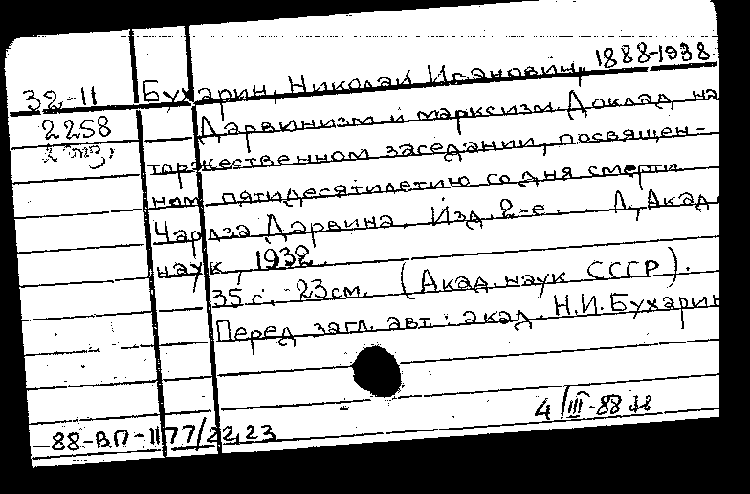 32-11 Бухарин, Николай Иванович, 1888-1938
2258 Дарвинизм и марксизм. Доклад на
2 экз. торжественном заседании, посвящен-
ном пятидесятилетию со дня смерти
Чарлза Дарвина. Изд. 2-е. Л., Акад.
наук, 1932.
35 с. 23см. (Акад. наук СССР).
Перед загл. авт.: акад. Н.И. Бухарин
4/III-88
88-ВП-1177/22,23